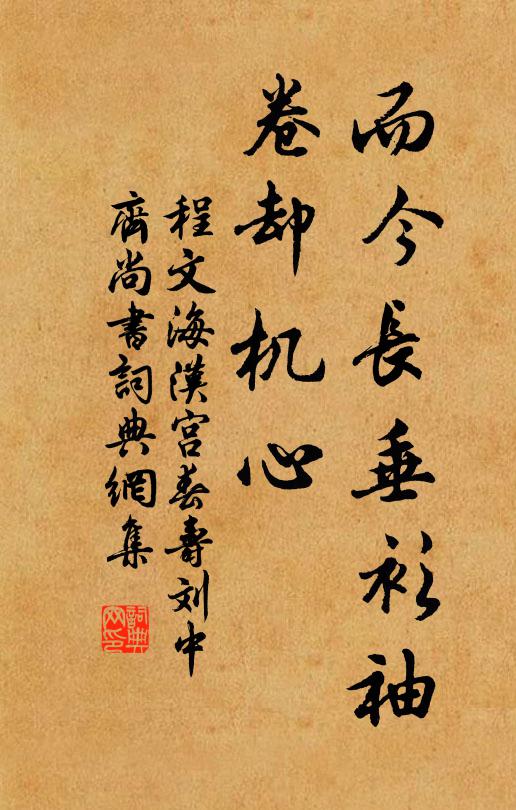 而今長垂衫袖
卷却机心
程文海漢宮春壽刘中
齊尚書詞典網集
詞典网印